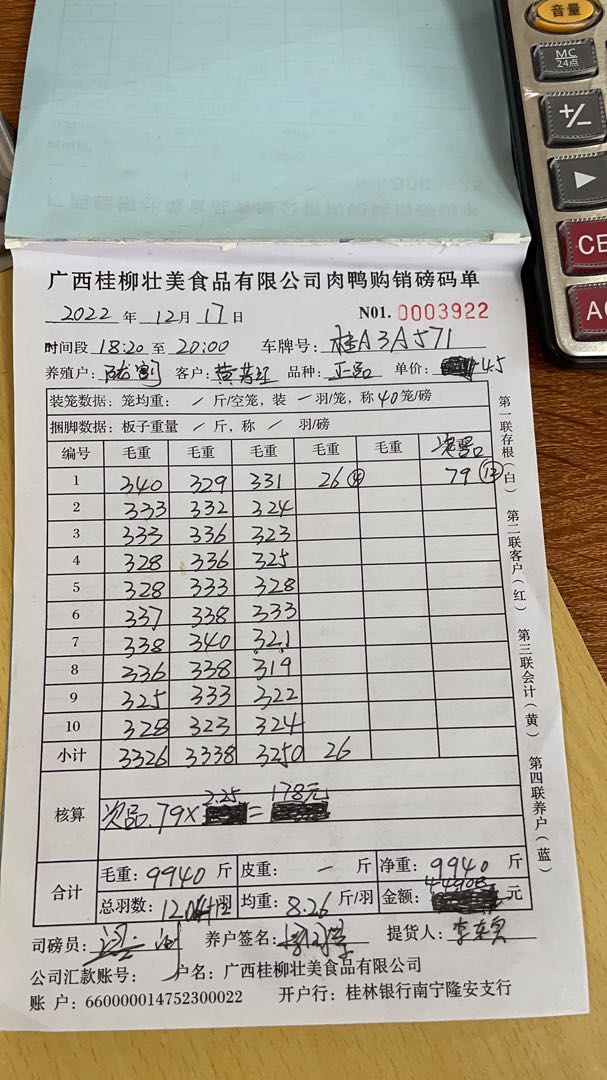 音量
MC
24点
+/-
▶
CE
AC
广西桂柳壮美食品有限公司肉鸭购销磅码单
2022 年 12月 17日 N01. 0003922
时间段 18:20 至 20:00 车牌号: 桂A3A571
养殖户: 客户: 品种: 正品 单价: 4.5
装笼数据: 笼均重: / 斤/空笼, 装 / 羽/笼, 称 40 笼/磅
捆脚数据: 板子重量 / 斤, 称 / 羽/磅
编号 毛重 毛重 毛重 毛重 毛重 次品
1 340 329 331 26 ④ 79 ⑫
2 333 332 324
3 333 336 323
4 328 336 325
5 328 333 328
6 337 338 333
7 338 340 321
8 336 338 319
9 325 333 322
10 328 323 324
小计 3326 3338 3250 26
核算 次品.79× 2.25 = 178元
合计 毛重: 9940 斤 皮重: — 斤 净重: 9940 斤
总羽数: 1204羽 均重: 8.26 斤/羽 金额: 44908 元
司磅员: 养户签名: 提货人:
公司汇款账号: 户名: 广西桂柳壮美食品有限公司
账 户: 660000014752300022 开户行: 桂林银行南宁隆安支行
第一联存根(白) 第二联客户(红) 第三联会计(黄) 第四联养户(蓝)